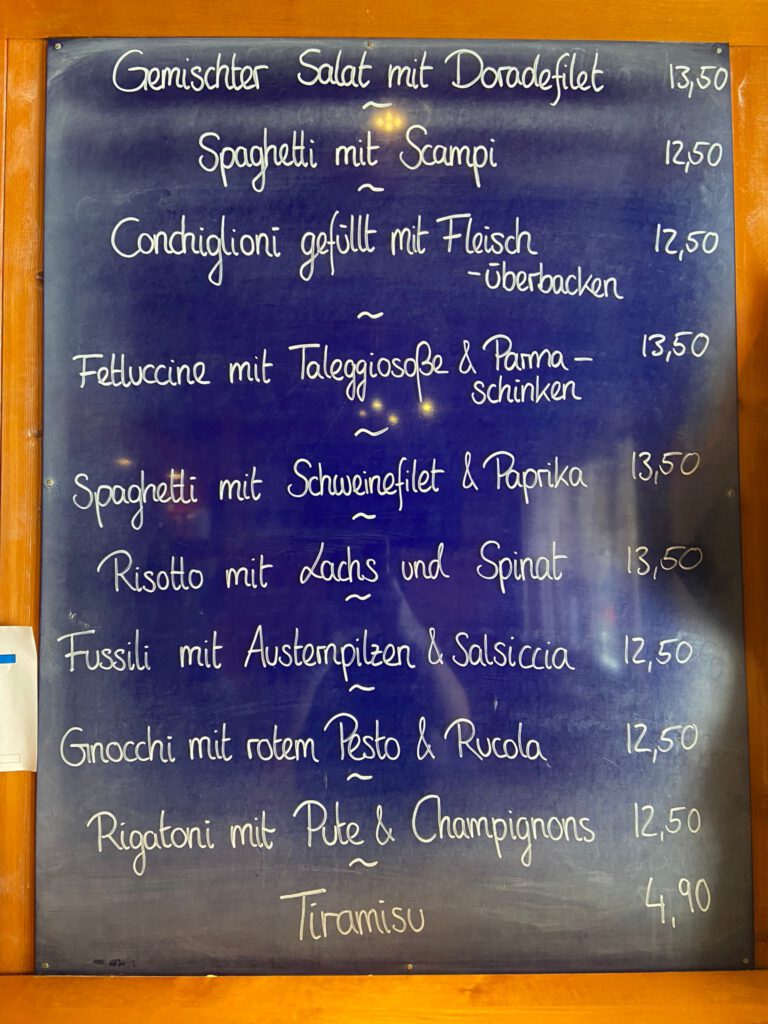 Gemischter Salat mit Doradefilet 13,50
~
Spaghetti mit Scampi 12,50
~
Conchiglioni gefüllt mit Fleisch 12,50
-überbacken
~
Fettuccine mit Taleggiosoße & Parma- 13,50
schinken
~
Spaghetti mit Schweinefilet & Paprika 13,50
~
Risotto mit Lachs und Spinat 13,50
~
Fussili mit Austernpilzen & Salsiccia 12,50
~
Gnocchi mit rotem Pesto & Rucola 12,50
~
Rigatoni mit Pute & Champignons 12,50
~
Tiramisu 4,90